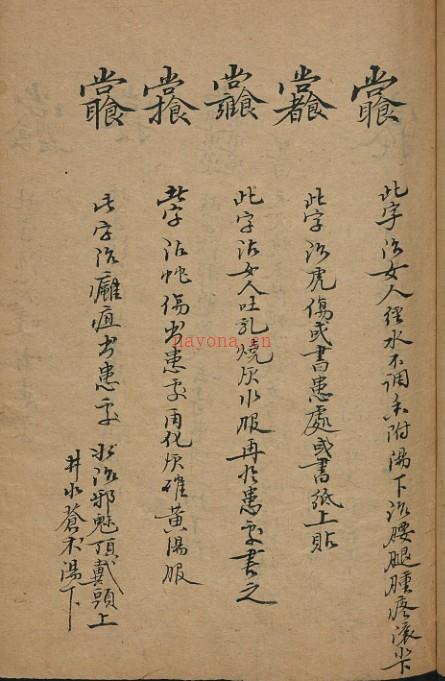 此字治女人經水不調香附湯下治腰腿腫疼滾水下
此字治虎傷或書患處或書紙上貼
此字治女人吐乳燒灰水服再於患處書之
此字治蛇傷書患處再化灰雄黃湯服
此字治癰疽書患處 治邪魅頂戴頭上
井水蒼朮湯下
nayona.cn